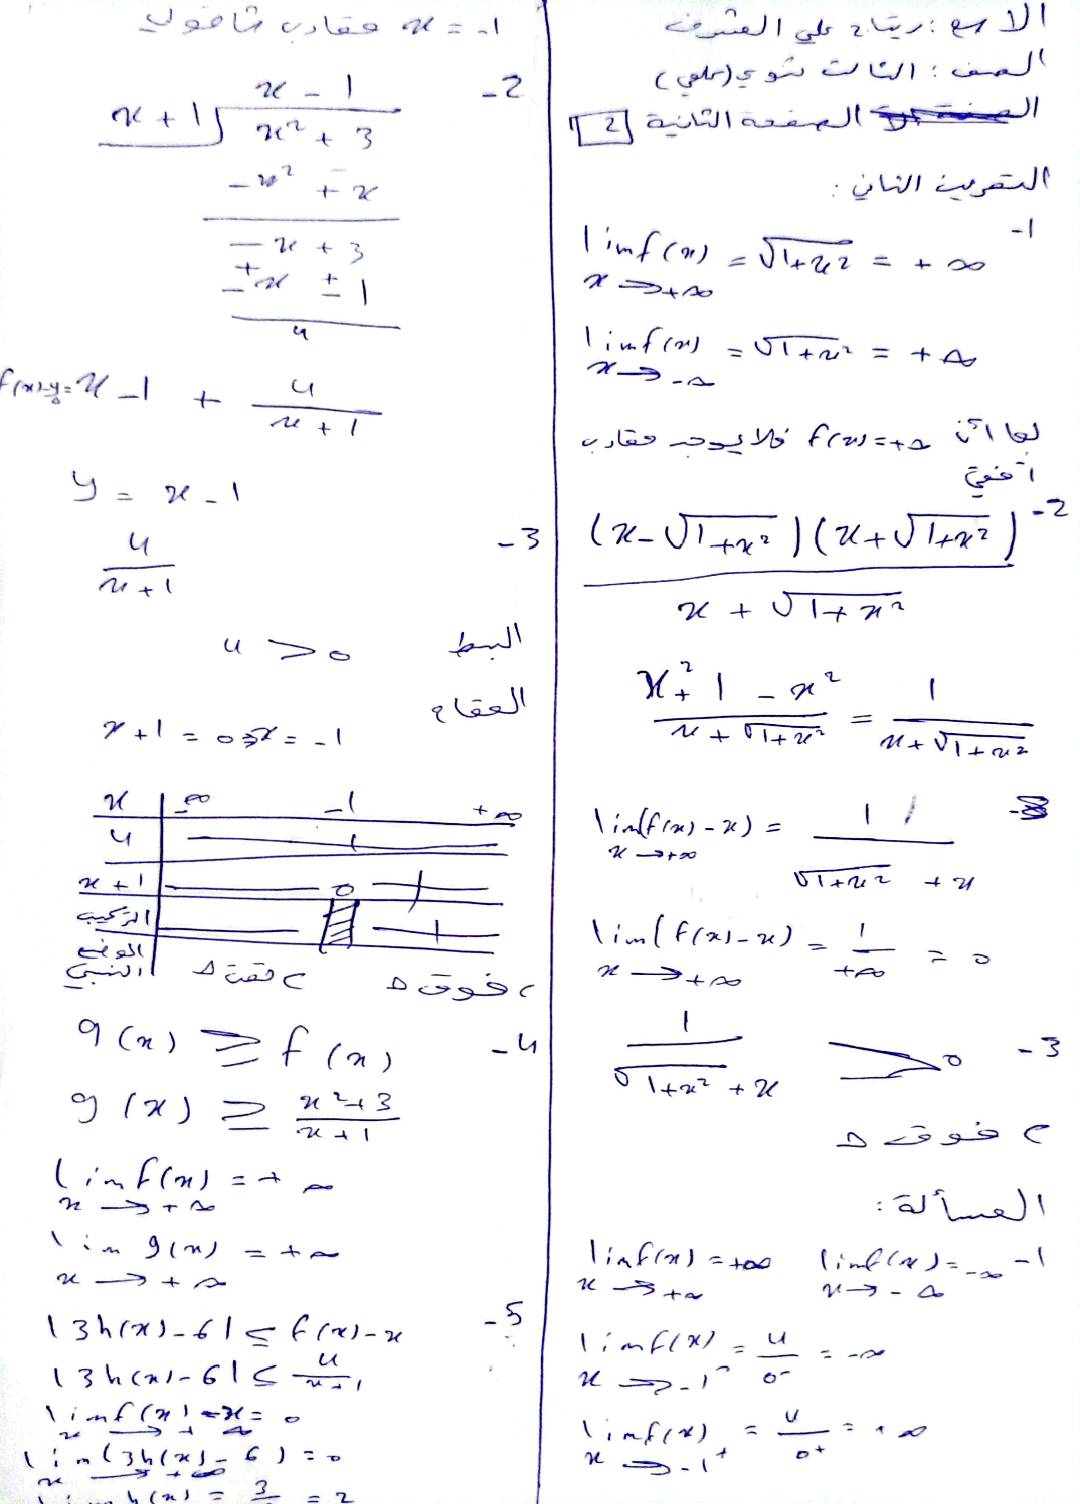 الاسم: ريتاج علي المشرف
الصف: الثالث ثنوي (علمي)
الصفحة الثانية 2
التمرين الثاني:
1-
lim f(x) = √1+x² = +∞
x→+∞
lim f(x) = √1+x² = +∞
x→-∞
بما أن f(x)=+∞ فلا يوجد مقارب
أفقي
2-
(x-√1+x²)(x+√1+x²)
x + √1+x²
x²+1-x² / x+√1+x² = 1 / x+√1+x²
lim(f(x)-x) = 1 / √1+x² + x
x→+∞
lim(f(x)-x) = 1/+∞ = 0
x→+∞
3-
1 / √1+x² + x > 0
C فوق Δ
المسألة:
1-
lim f(x) = -∞ lim f(x) = +∞
x→-∞ x→+∞
lim f(x) = 4/0- = -∞
x→-1-
lim f(x) = 4/0+ = +∞
x→-1+
x = -1 مقارب شاقولي
2-
x - 1
x + 1 √ x² + 3
-x² + x
-x + 3
±x ± 1
4
f(x)-y = x - 1 + 4 / x + 1
y = x - 1
3-
4 / x + 1
البسط 4 > 0
المقام
x + 1 = 0 ⇒ x = -1
x -∞ -1 +∞
4 +
x + 1 - 0 +
التركيب - +
الوضع النسبي C تحت Δ C فوق Δ
4-
g(x) ≥ f(x)
g(x) ≥ x²+3 / x+1
lim f(x) = +∞
x→+∞
lim g(x) = +∞
x→+∞
5-
|3h(x)-6| ≤ f(x)-x
|3h(x)-6| ≤ 4 / x+1
lim f(x)-x = 0
x→+∞
lim (3h(x)-6) = 0
x→+∞
h(x) = = 2